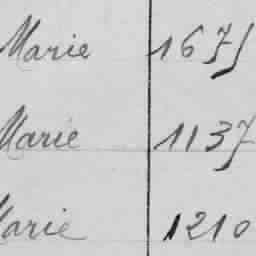 Marie 1675
Marie 1137
Marie 1210